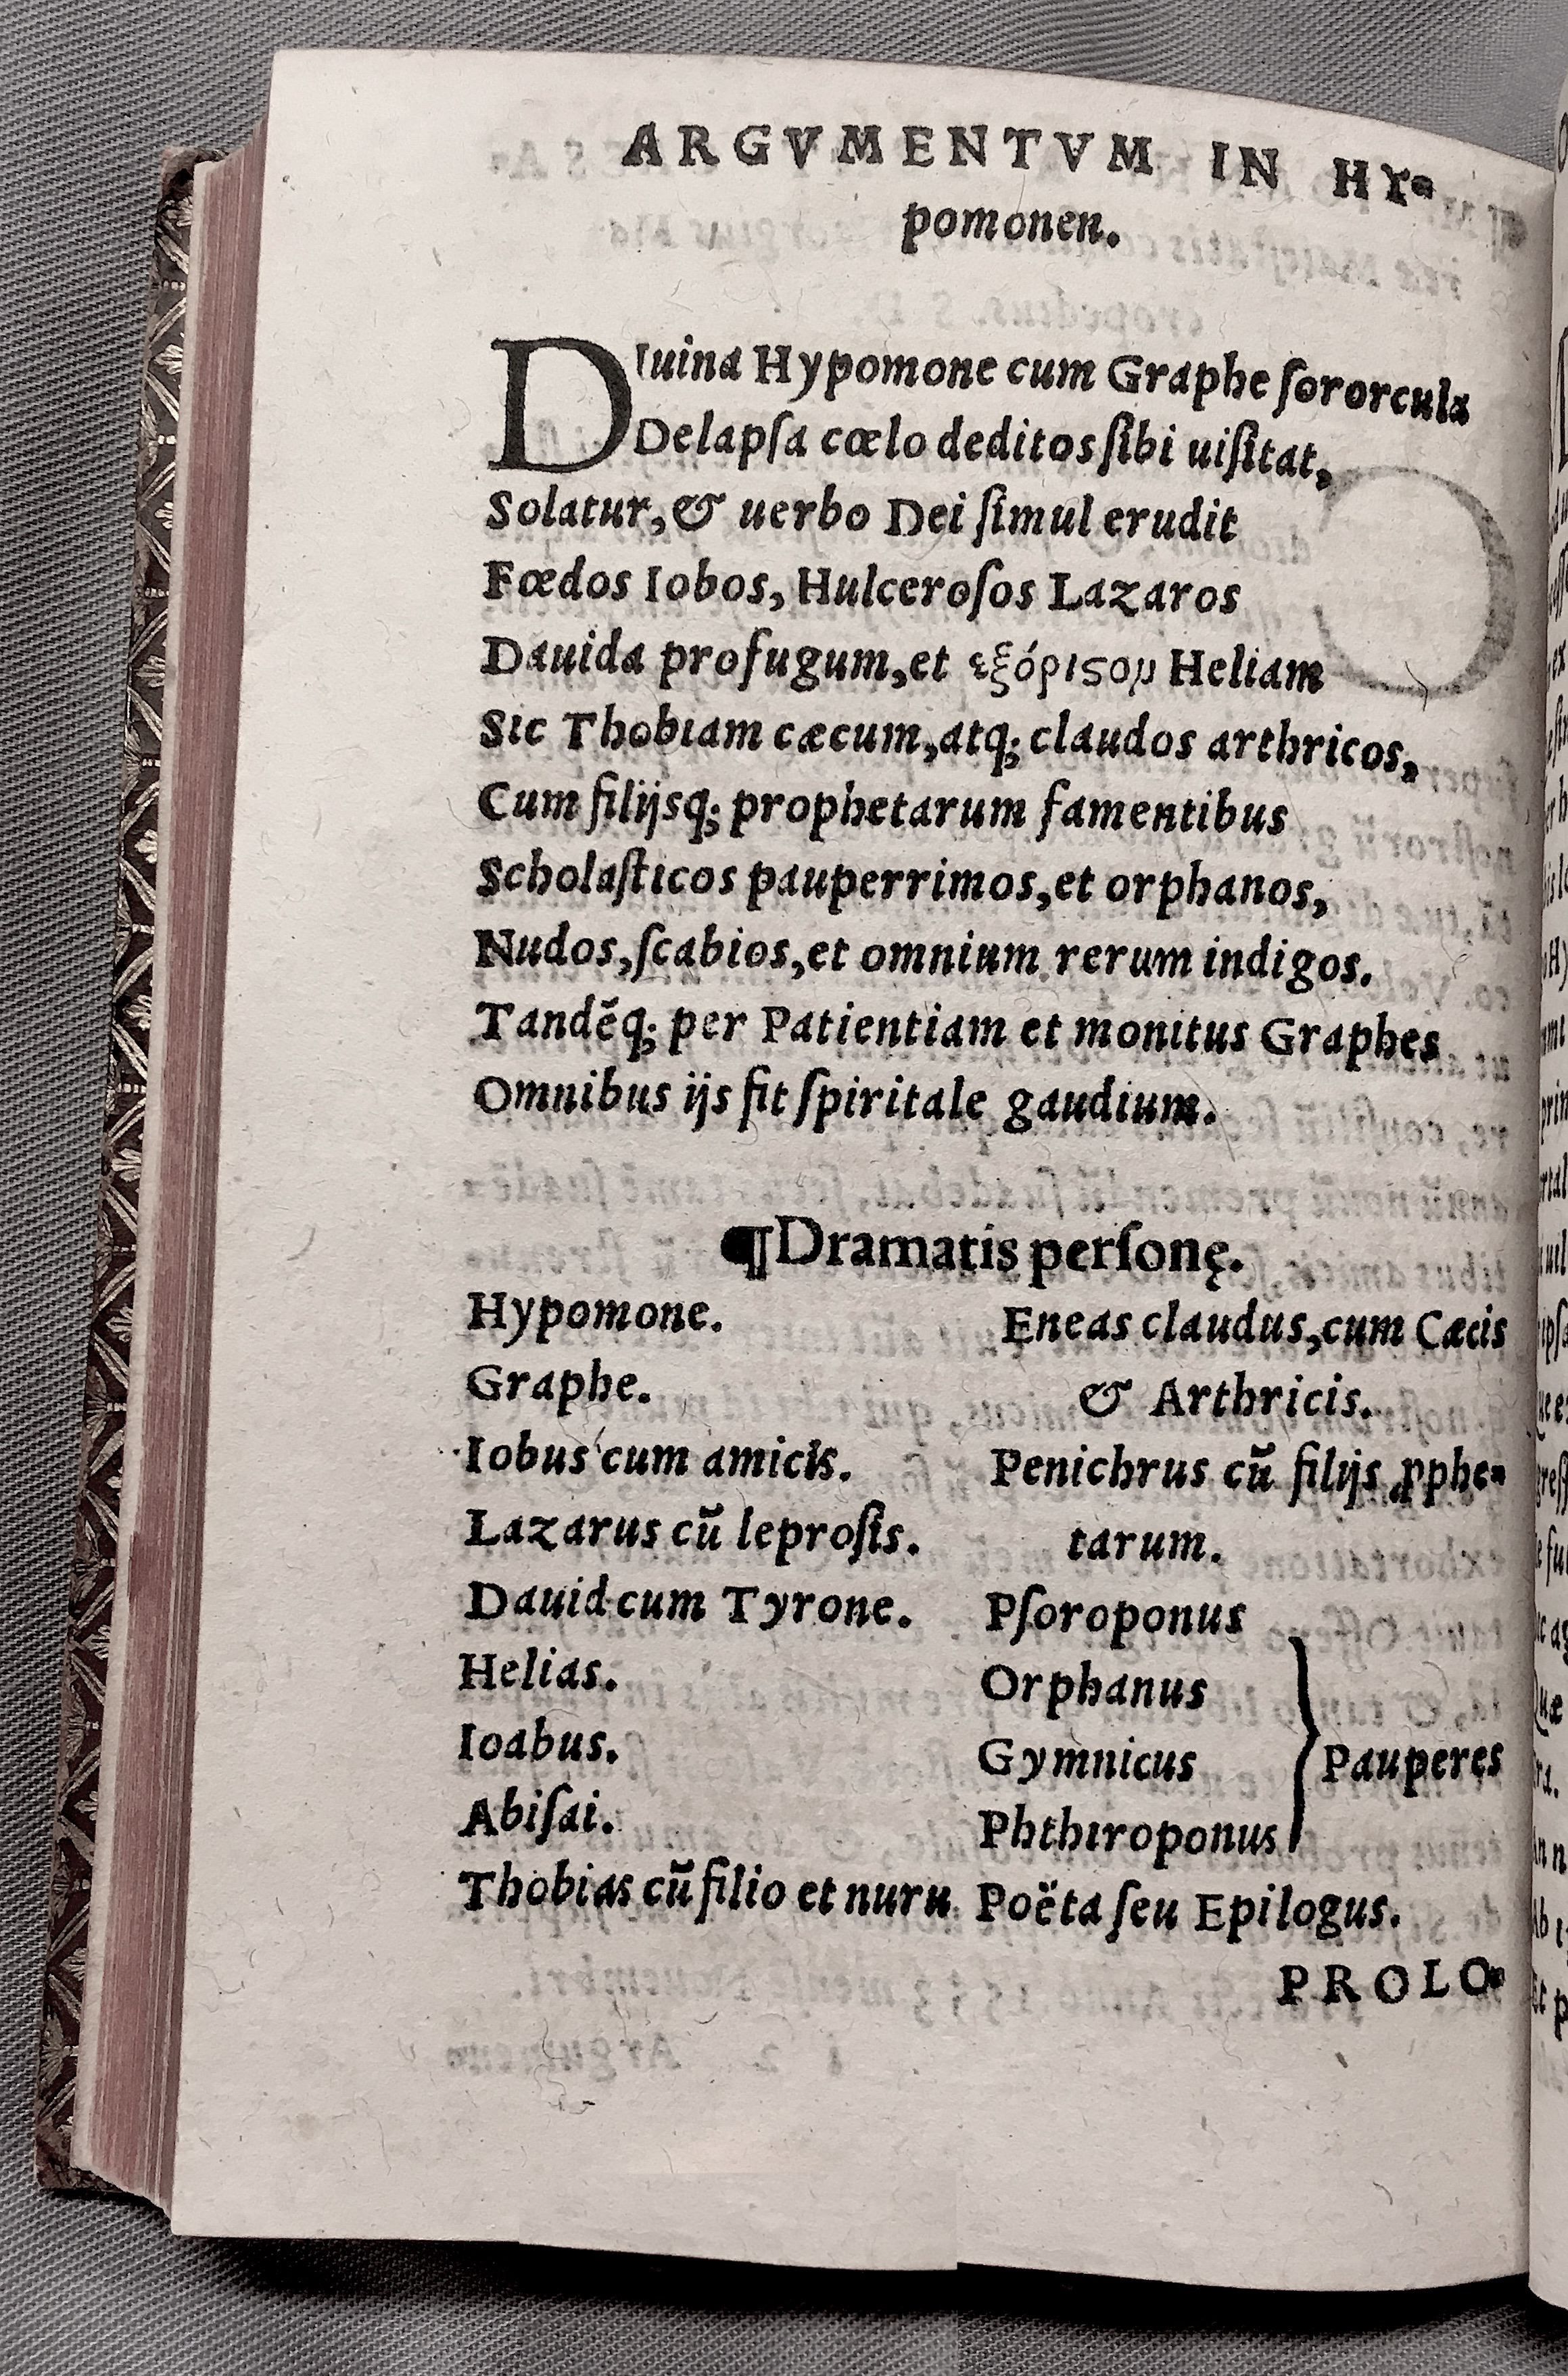 ARGVMENTVM IN HY⸗
pomonen.
DIuina Hypomone cum Graphe ſororcula
Delapſa cœlo deditos ſibi uiſitat,
Solatur, & uerbo Dei ſimul erudit
Fœdos Iobos, Hulceroſos Lazaros
Dauida profugum, et εξόριϛου Heliam
Sic Thobiam cæcum, atq; claudos arthricos,
Cum filijsq; prophetarum famentibus
Scholaſticos pauperrimos, et orphanos,
Nudos, ſcabios, et omnium rerum indigos.
Tandēq; per Patientiam et monitus Graphes
Omnibus ijs fit ſpiritale gaudium.
¶Dramatis perſonę.
Hypomone.
Graphe.
Iobus cum amicis.
Lazarus cū leproſis.
Dauid cum Tyrone.
Helias.
Ioabus.
Abiſai.
Thobias cū filio et nuru
Eneas claudus, cum Cæcis
& Arthricis.
Penichrus cū filijs ꝓphe⸗
tarum.
Pſoroponus
Orphanus
Gymnicus
Phthiroponus
Pauperes
Poëta ſeu Epilogus.
PROLO⸗